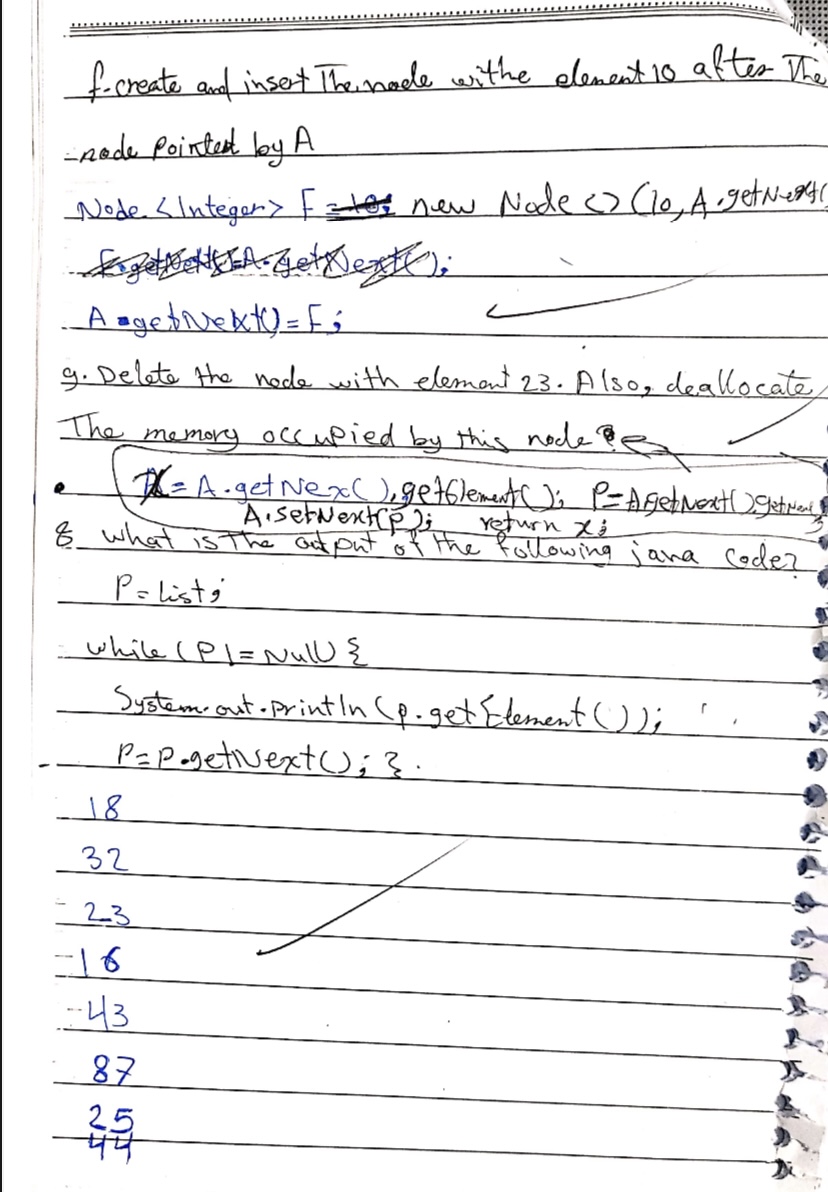 f-create and insert The node withe element 10 after The
node pointed by A
Node <Integer> F =10; new Node <> (10, A.getNext(
F.getNext()=A.getNext();
A.getNext()=F;
g. Delete the node with element 23. Also, deallocate
The memory occupied by this node?
X = A.getNex().getElement(); P=A.getNext().getNext
A.setNext(p); return x;
8 what is The output of the following java code?
P=list;
while (P!=Null) {
System.out.println(p.getElement());
P=P.getNext(); }.
18
32
23
16
43
87
25
44